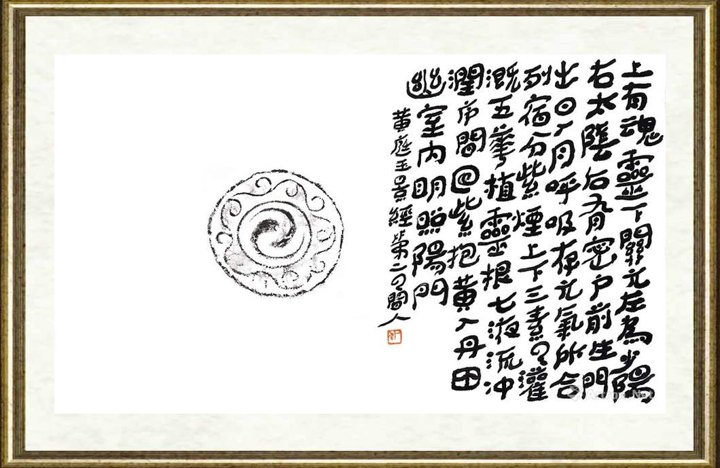 上有魂靈下關元左為少陽
右太陰后有密戶前生門
出日入月呼吸存元氣所合
列宿分紫煙上下三素云灌
溉五華植靈根七液流冲
間回紫抱黃入丹田
幽室內明照陽門
黃庭玉景經第二云間人